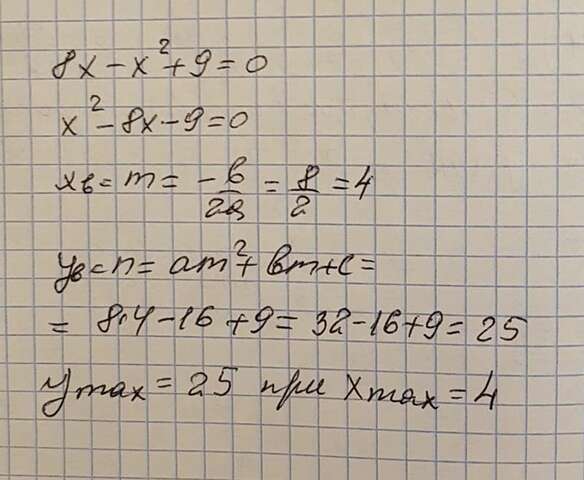 8x - x² + 9 = 0
x² - 8x - 9 = 0
xв = m = -b/2a = 8/2 = 4
yв = n = am² + bm + c =
= 8·4 - 16 + 9 = 32 - 16 + 9 = 25
ymax = 25 при xmax = 4